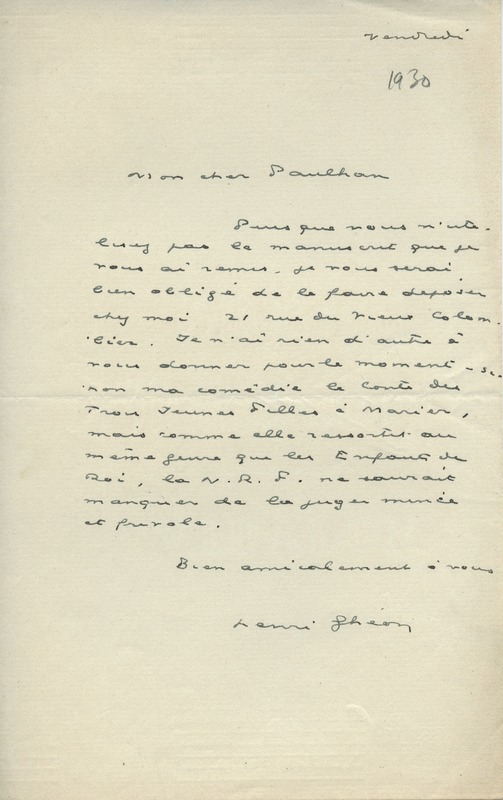 Vendredi
1930
Mon cher Paulhan
Puisque vous n'uti-
lisez pas le manuscrit que je
vous ai remis, je vous serai
bien obligé de le faire déposer
chez moi 21 rue du Vieux Colom-
bier. Je n'ai rien d'autre à
vous donner pour le moment - si-
non ma comédie le Conte des
Trois Jeunes Filles à Marier,
mais comme elle ressortit au
même genre que les Enfants du
Roi, la N.R.F. ne saurait
manquer de la juger mince
et frivole.
Bien amicalement à vous
Henri Ghéon